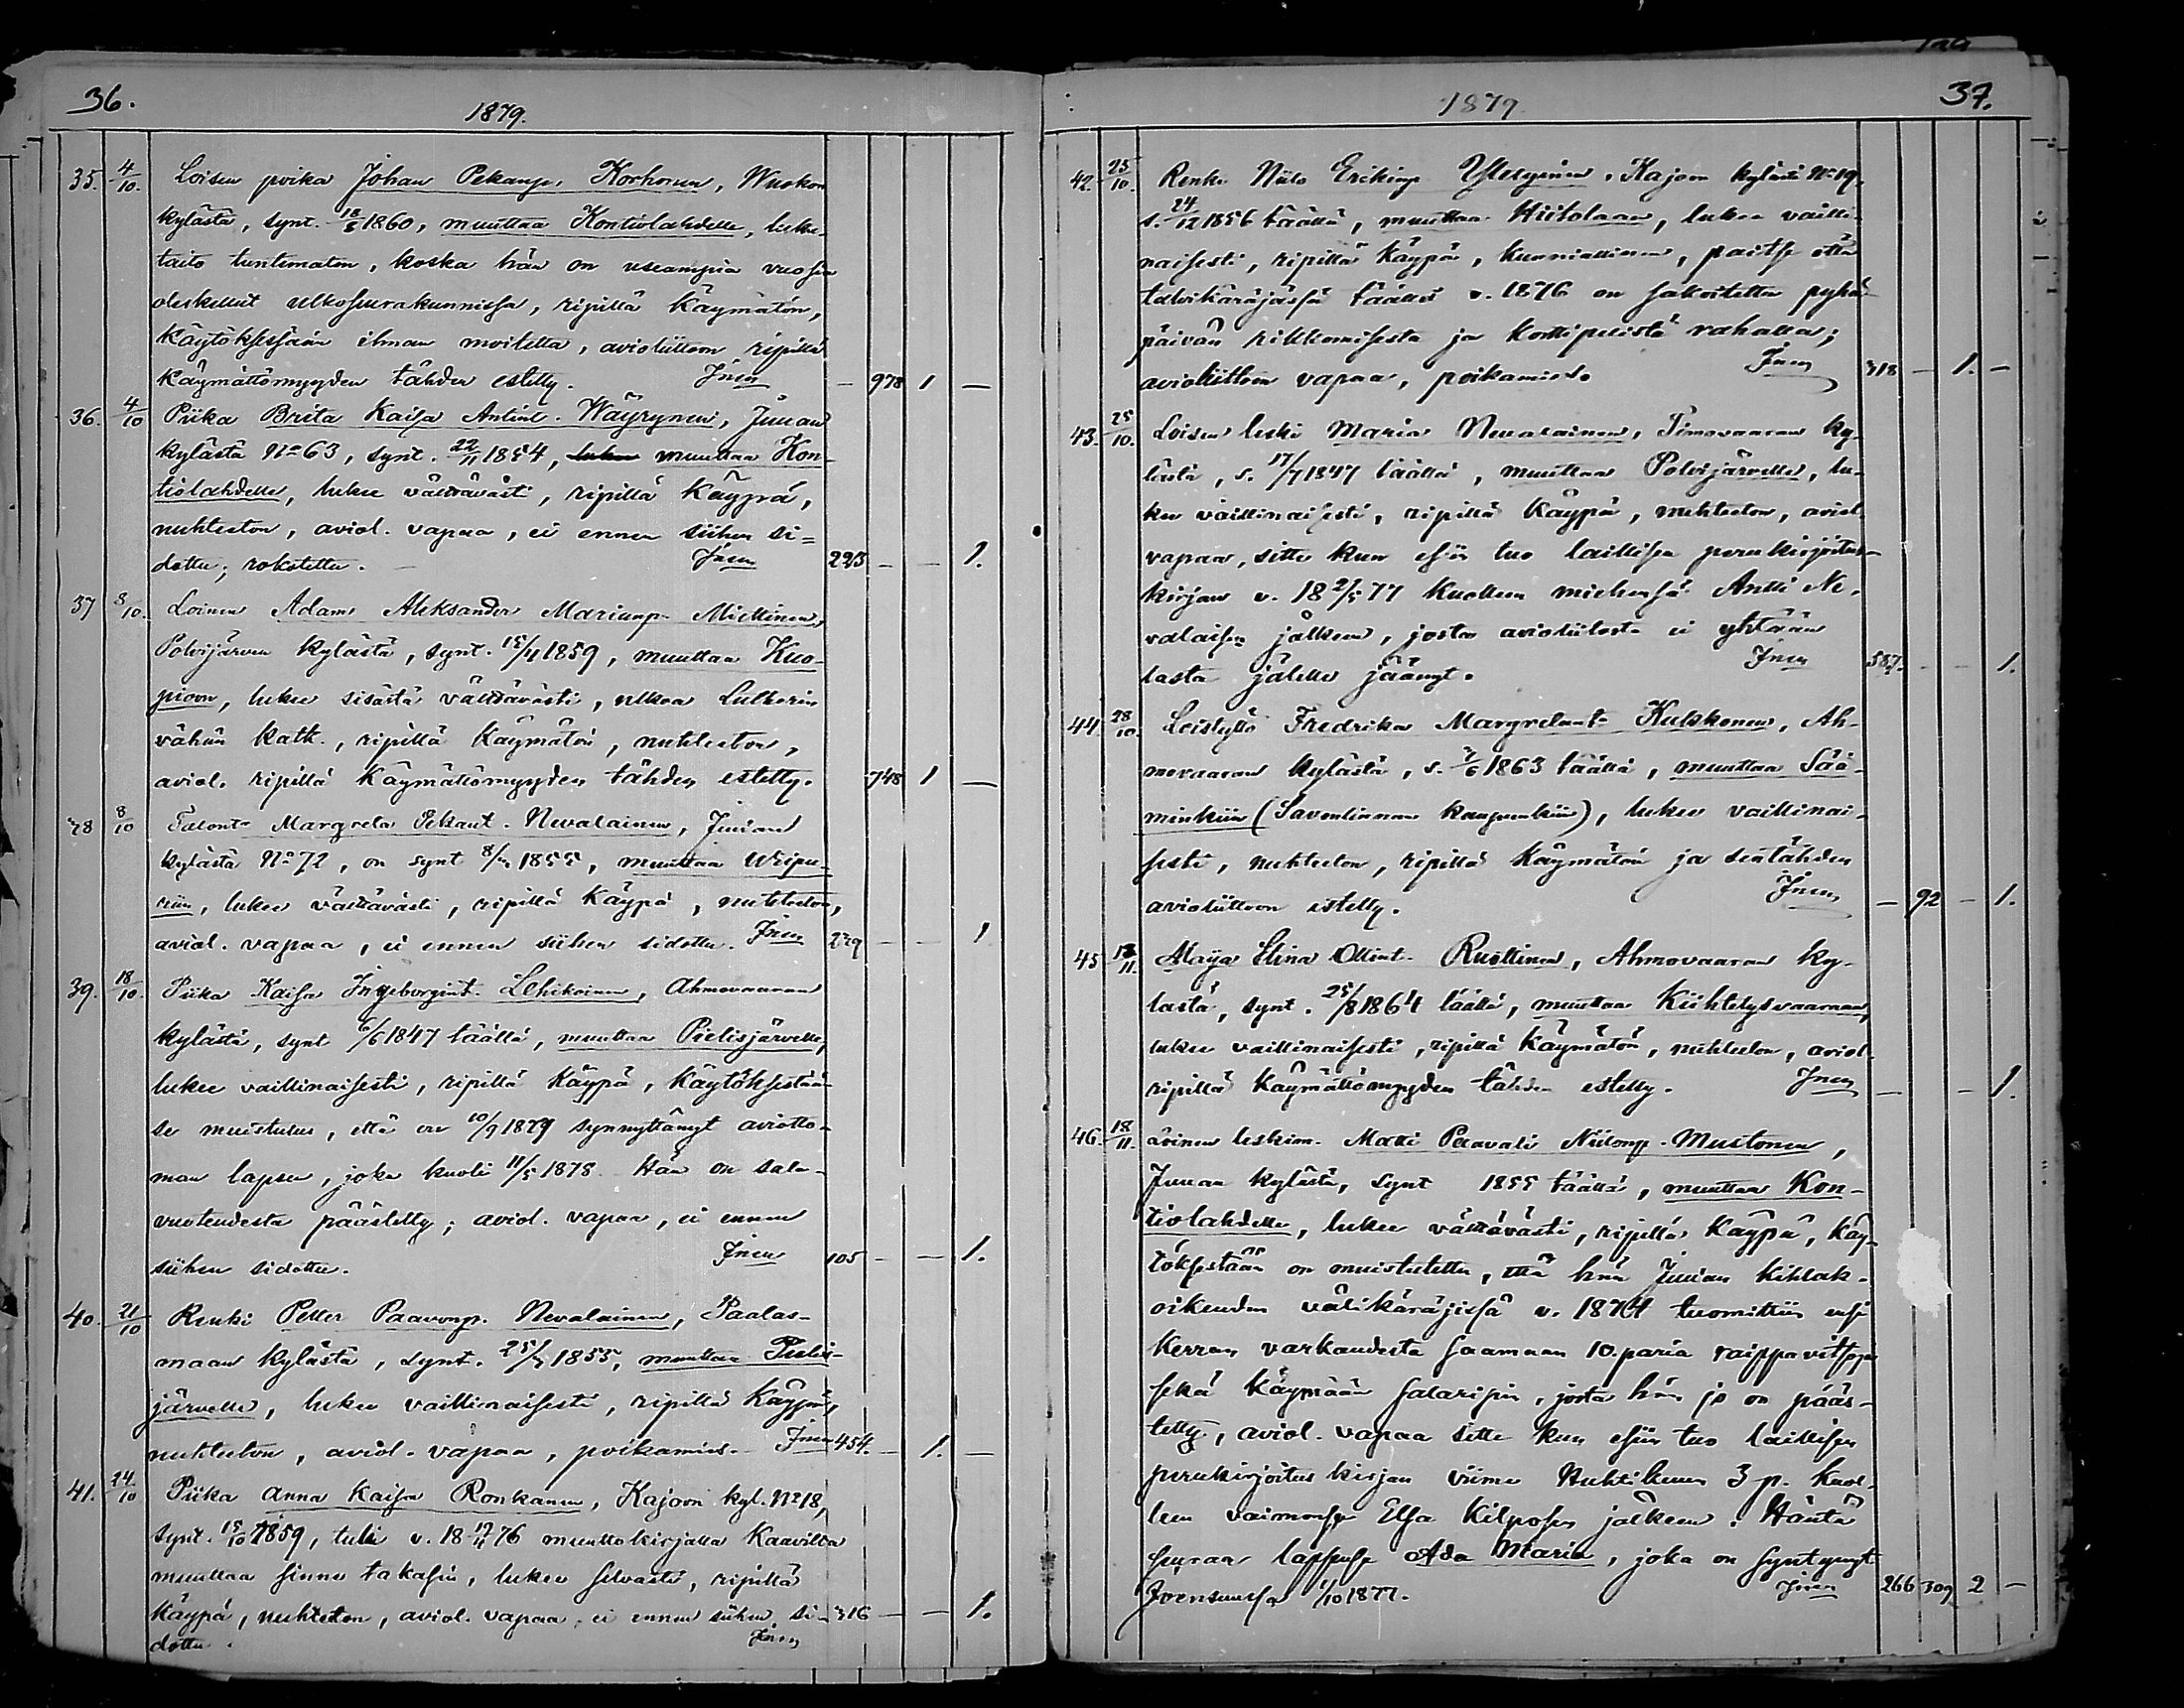 36.
1879.
35. 4/10. Loisen poika Johan Pekanp. Korhonen, Wuokon
kylästä, synt. 18/5 1860, muuttaa Kontiolahdelle, luku-
taito tuntematon, koska hän on useampia vuosia
oleskellut ulkoseurakunnissa, ripillä käymätön,
käytöksessään ilman moitetta, avioliittoon ripillä
käymättömyyden tähden estetty. Jnen — 978 1 —
36. 4/10 Piika Brita Kaisa Antint. Wäyrynen, Juuan
kylästä No 63, synt. 22/11 1854, lukee muuttaa Kon-
tiolahdelle, lukee välttävästi, ripillä käypä,
nuhteeton, aviol. vapaa, ei ennen siihen si=
dottu; rokotettu. — Jnen 223 — — 1.
37 8/10. Loinen Adam Aleksander Mariunp. Miettinen,
Polvijärven kylästä, synt. 15/4 1859, muuttaa Kuo-
pioon, lukee sisästä välttävästi, ulkoa Lutherin
vähän katk., ripillä käymätön, nuhteeton,
aviol. ripillä käymättömyyden tähden estetty. 748 1 —
38 8/10 Talont. Margreta Pekant. Nevalainen, Juuan
kylästä No 72, on synt 8/ 1855, muuttaa Wiipu-
riin, lukee välttävästi, ripillä käypä, nuhteeton,
aviol. vapaa, ei ennen siihen sidottu. Jnen 279 — — 1
39. 18/10. Piika Kaisa Ingeborgint. Lehikoinen, Ahmovaaran
kylästä, synt 6/6 1847 täällä, muuttaa Pielisjärvelle,
lukee vaillinaisesti, ripillä käypä, käytöksestään
se muistutus, että on 10/9 1879 synnyttänyt aviotto-
man lapsen, joka kuoli 11/5 1878. Hän on sala-
vuoteudesta päästetty; aviol. vapaa, ei ennen
siihen sidottu. Jnen 105 — — 1.
40. 21/10 Renki Petter Paavonp. Nevalainen, Paalas-
maan kylästä, synt. 25/ 1855, muuttaa Pielis-
järvelle, lukee vaillinaisesti, ripillä käypä,
nuhteeton, aviol. vapaa, poikamies. Jnen 454. — 1. —
41. 24./10 Piika Anna Kaisa Ronkanen, Kajoon kyl. No 18,
synt. 15/10 1859, tuli v. 18 17/11 76 muuttokirjalla Kaavilta
muuttaa sinne takasin, lukee selvästi, ripillä
käypä, nuhteeton, aviol. vapaa, ei ennen siihen si- 316 — — 1.
dottu. Jnen
37.
1879
42. 25/10. Renki Niilo Erikinp Ylesyinen, Kajoon kylästä No 19,
s. 24/12 1856 täällä, muuttaa Hiitolaan, lukee vailli-
naisesti, ripillä käypä, kunniallinen, paitse että
talvikäräjässä täällä v. 1876 on sakoitettu pyhä-
päivän rikkomisesta ja korttipelistä rahalla;
avioliittoon vapaa, poikamies. Jnen 318 — 1. —
43. 25/10. Loisen leski Maria Nevalainen, Timovaaran ky-
lästä, s. 17/7 1847 täällä, muuttaa Polvijärvelle, lu-
kee vaillinaisesti, ripillä käypä, nuhteeton, aviol.
vapaa, sitte kun esiin tuo laillisen perukirjoitus-
kirjan v. 18 21/5 77 kuolleen miehensä Antti Ne-
valaisen jälkeen, josta avioliitosta ei yhtään
lasta jälelle jäänyt. Jnen 587. — — 1.
44 28/10. Loistyttö Fredrika Margretant. Kukkonen, Ah-
movaaran kylästä, s. 7/6 1863 täällä, muuttaa Sää-
minkiin (Savonlinnan kaupunkiin), lukee vaillinai-
sesti, nuhteeton, ripillä käymätön ja sentähden
avioliittoon estetty. Jnen — 92 — 1.
45 13/11. Maija Elina Ollint. Ruottinen, Ahmovaaran ky-
lästä, synt. 25/8 1864 täällä, muuttaa Kiihtelysvaaraan,
lukee vaillinaisesti, ripillä käymätön, nuhteeton, aviol.
ripillä käymättömyyden tähden estetty. Jnen — — 1.
46. 18/11. Loinen leskim. Matti Paavali Niilonp. Mustonen,
Juuan kylästä, synt 1855 täällä, muuttaa Kon-
tiolahdelle, lukee välttävästi, ripillä käypä, käy-
töksestään on muistutettu, että hän Juuan kihlak-
oikeuden välikäräjissä v. 1874 tuomittiin ensi
kerran varkaudesta saamaan 10. paria raippavitsoja
sekä käymään salaripin, josta hän jo on pääs-
tetty, aviol. vapaa sitte kun esiin tuo laillisen
perukirjoitus kirjan viime Huhtikuun 3 p. kuol-
leen vaimonsa Elsa Kilposen jälkeen. Häntä
seuraa lapsensa Ada Maria, joka on syntynyt
Joensuussa 1/10 1877. Jnen 266 309 2 —